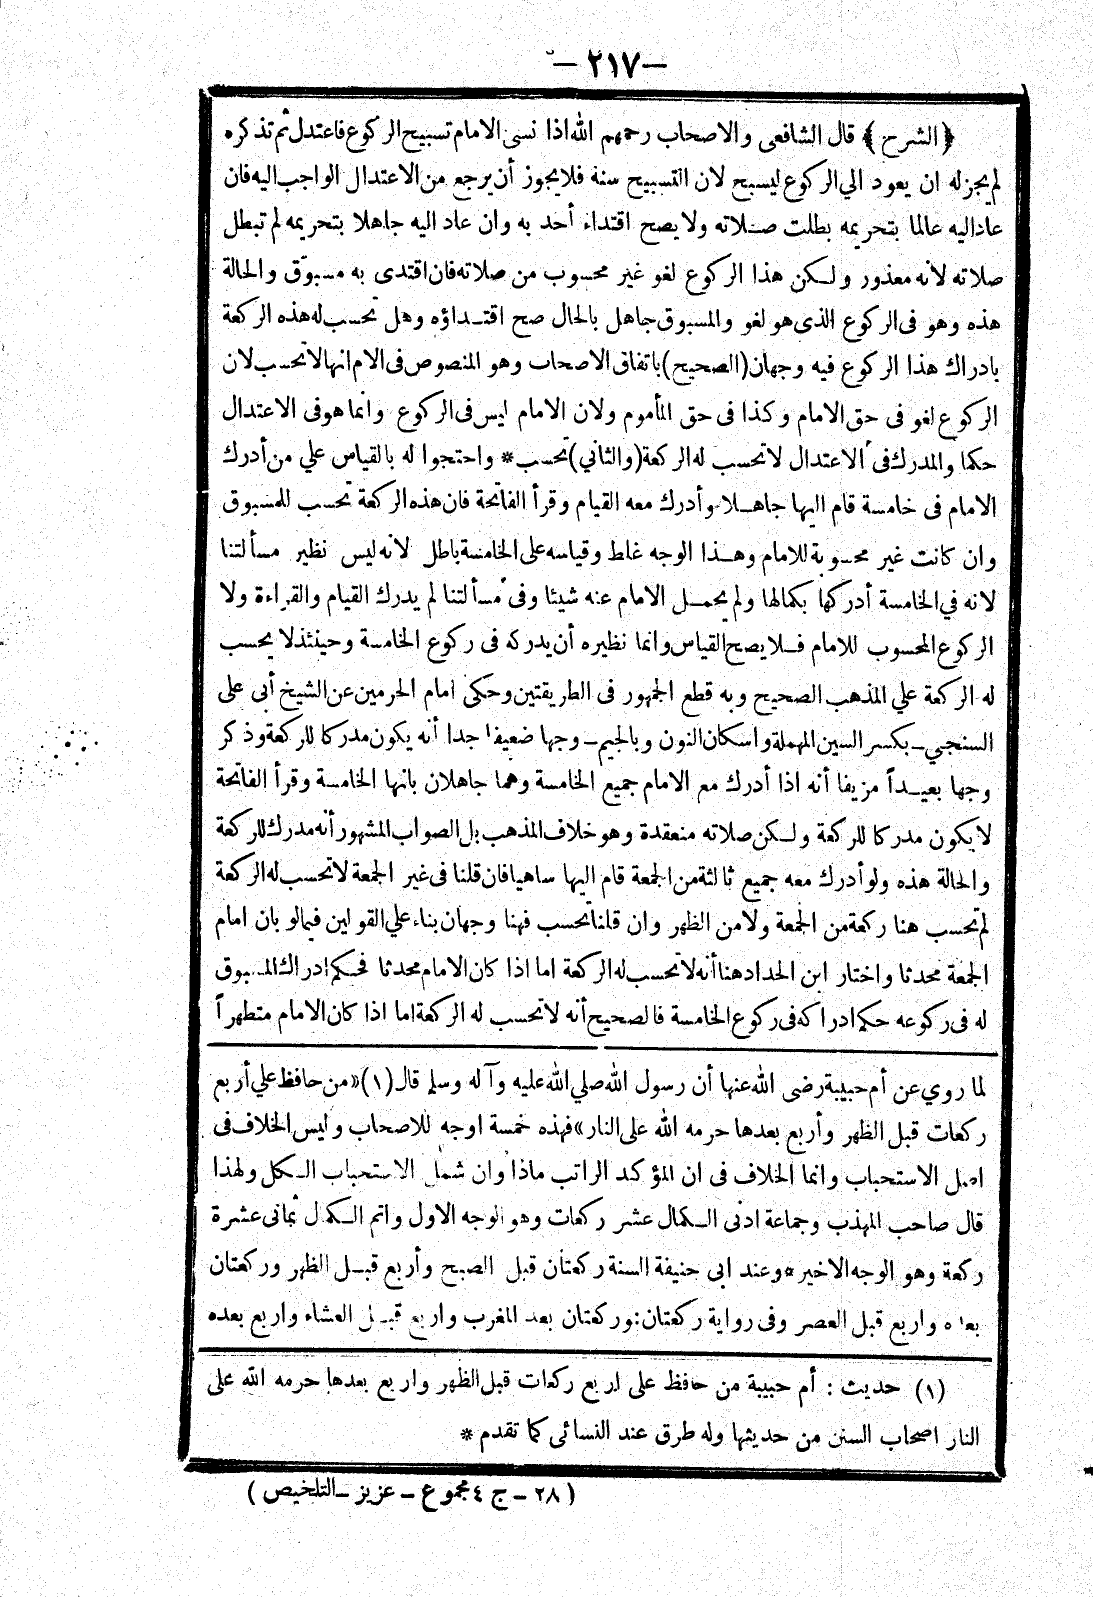 — ٢١٧ —
﴿ الشرح ﴾ قال الشافعى والاصحاب رحمهم الله اذا نسى الامام تسبيح الركوع فاعتدل ثم تذكره
لم يجزله ان يعود الي الركوع ليسبح لان التسبيح سنة فلا يجوز أن يرجع من الاعتدال الواجب اليه فان
عاد اليه عالما بتحريمه بطلت صلاته ولا يصح اقتداء أحد به وان عاد اليه جاهلا بتحريمه لم تبطل
صلاته لانه معذور ولكن هذا الركوع لغو غير محسوب من صلاته فان اقتدى به مسبوق والحالة
هذه وهو فى الركوع الذى هو لغو والمسبوق جاهل بالحال صح اقتداؤه وهل تحسب له هذه الركعة
بادراك هذا الركوع فيه وجهان (الصحيح) باتفاق الاصحاب وهو المنصوص فى الام انها لا تحسب لان
الركوع لغو فى حق الامام وكذا فى حق المأموم ولان الامام ليس فى الركوع وانما هو فى الاعتدال
حكما والمدرك فى الاعتدال لا تحسب له الركعة (والثاني) تحسب * واحتجوا له بالقياس علي من أدرك
الامام فى خامسة قام اليها جاهلا وأدرك معه القيام وقرأ الفاتحة فان هذه الركعة تحسب للمسبوق
وان كانت غير محسوبة للامام وهذا الوجه غلط وقياسه على الخامسة باطل لانه ليس نظير مسألتنا
لانه في الخامسة أدركها بكمالها ولم يحمل الامام عنه شيئا وفى مسألتنا لم يدرك القيام والقراءة ولا
الركوع المحسوب للامام فلا يصح القياس وانما نظيره أن يدركه فى ركوع الخامسة وحينئذ لا يحسب
له الركعة علي المذهب الصحيح وبه قطع الجمهور فى الطريقتين وحكى امام الحرمين عن الشيخ أبى على
السنجي – بكسر السين المهملة واسكان النون وبالجيم – وجها ضعيفا جدا أنه يكون مدركا للركعة وذكر
وجها بعيداً مزيفا أنه اذا أدرك مع الامام جميع الخامسة وهما جاهلان بانها الخامسة وقرأ الفاتحة
لا يكون مدركا للركعة ولكن صلاته منعقدة وهو خلاف المذهب بل الصواب المشهور أنه مدرك للركعة
والحالة هذه ولو أدرك معه جميع ثالثة من الجمعة قام اليها ساهيا فان قلنا فى غير الجمعة لا تحسب له الركعة
لم تحسب هنا ركعة من الجمعة ولا من الظهر وان قلنا تحسب فهنا وجهان بناء علي القولين فيما لو بان امام
الجمعة محدثا واختار ابن الحداد هنا أنه لا تحسب له الركعة اما اذا كان الامام محدثا فحكم ادراك المسبوق
له فى ركوعه حكم ادراكه فى ركوع الخامسة فالصحيح أنه لا تحسب له الركعة اما اذا كان الامام متطهراً
لما روي عن أم حبيبة رضى الله عنها أن رسول الله صلي الله عليه وآله وسلم قال (١) « من حافظ علي أربع
ركعات قبل الظهر وأربع بعدها حرمه الله على النار » فهذه خمسة اوجه للاصحاب وليس الخلاف فى
اصل الاستحباب وانما الخلاف فى ان المؤكد الراتب ماذا وان شمل الاستحباب الكل ولهذا
قال صاحب المهذب وجماعة ادنى الكمال عشر ركعات وهو الوجه الاول واتم الكمال ثمانى عشرة
ركعة وهو الوجه الاخير * وعند ابى حنيفة السنة ركعتان قبل الصبح وأربع قبل الظهر وركعتان
بعده واربع قبل العصر وفى رواية ركعتان : وركعتان بعد المغرب واربع قبل العشاء واربع بعده
(١) حديث : أم حبيبة من حافظ على اربع ركعات قبل الظهر واربع بعدها حرمه الله على
النار اصحاب السنن من حديثها وله طرق عند النسائى كما تقدم *
( ٢٨ – ج ٤ مجموع – عزيز – التلخيص )